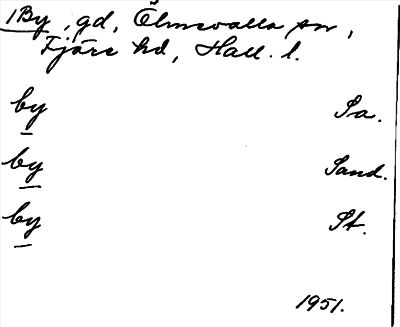 1 By, gd, Ölmevalla sn,
Fjäre hd, Hall. l.
by Sa.
by Sand.
by St.
1951.